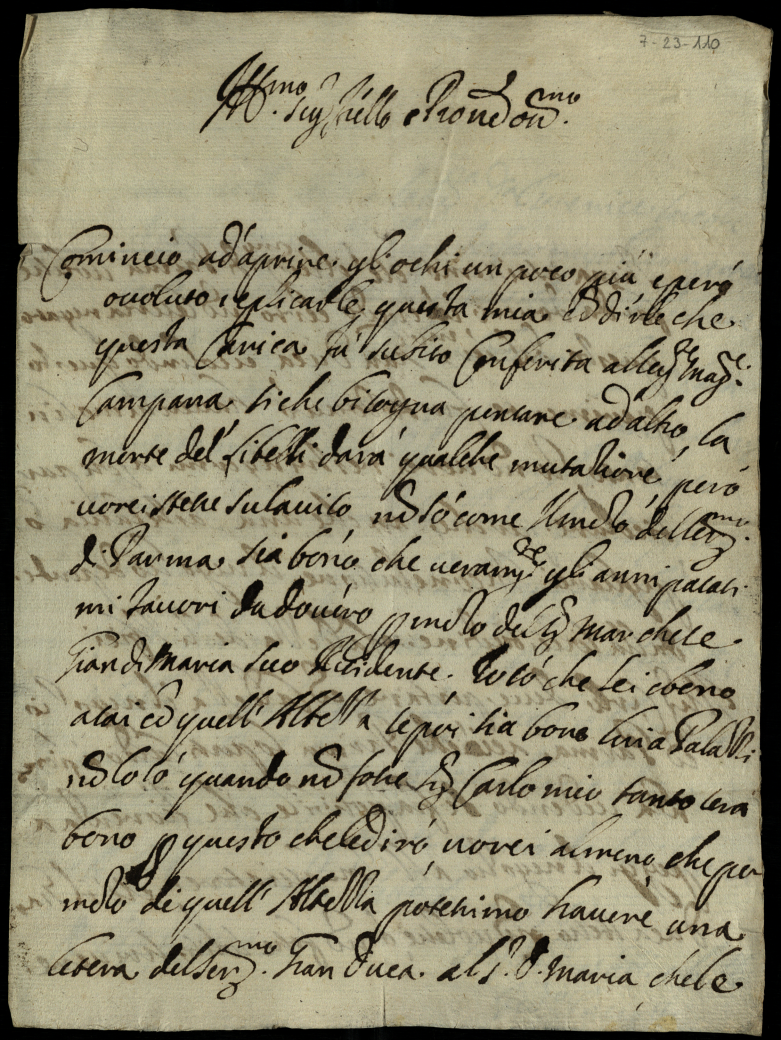 7-23-110
Ill.mo Sig.r Fr̃ello e Pron̄e Oss.mo
Comincio ad aprire gli ochi un poco piú e peró
o voluto replicarle questa mia cõ dirle che
questa Carica fú subito Conferita alle
Campana siche bisogna pensare ad altro, la
morte del Sitelli dará qualche mutatione, peró
vorei stare sul aviso nõ só come il mezo del Ser.mo
di Parma sia bono che veram.te gli anni pasati
mi favorí da dovéro p mezo del Sig. Marchese
Giandimaria suo Residente. Io só che lei é bono
asai cõ quell' Altezza se poi sia bono
nõ lo só quando nõ fose Sig. Carlo mio tanto será
bono p questo che le diró, vorei almeno che per
mezo di quell' Altezza potesimo havere una
letera del Ser.mo Gran Duca al S.r D. Maria che le